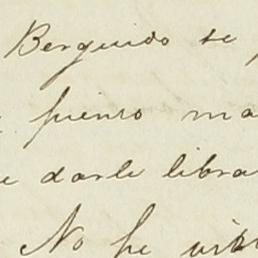 Berguido se
pienso ma
e darle libra
No he vis